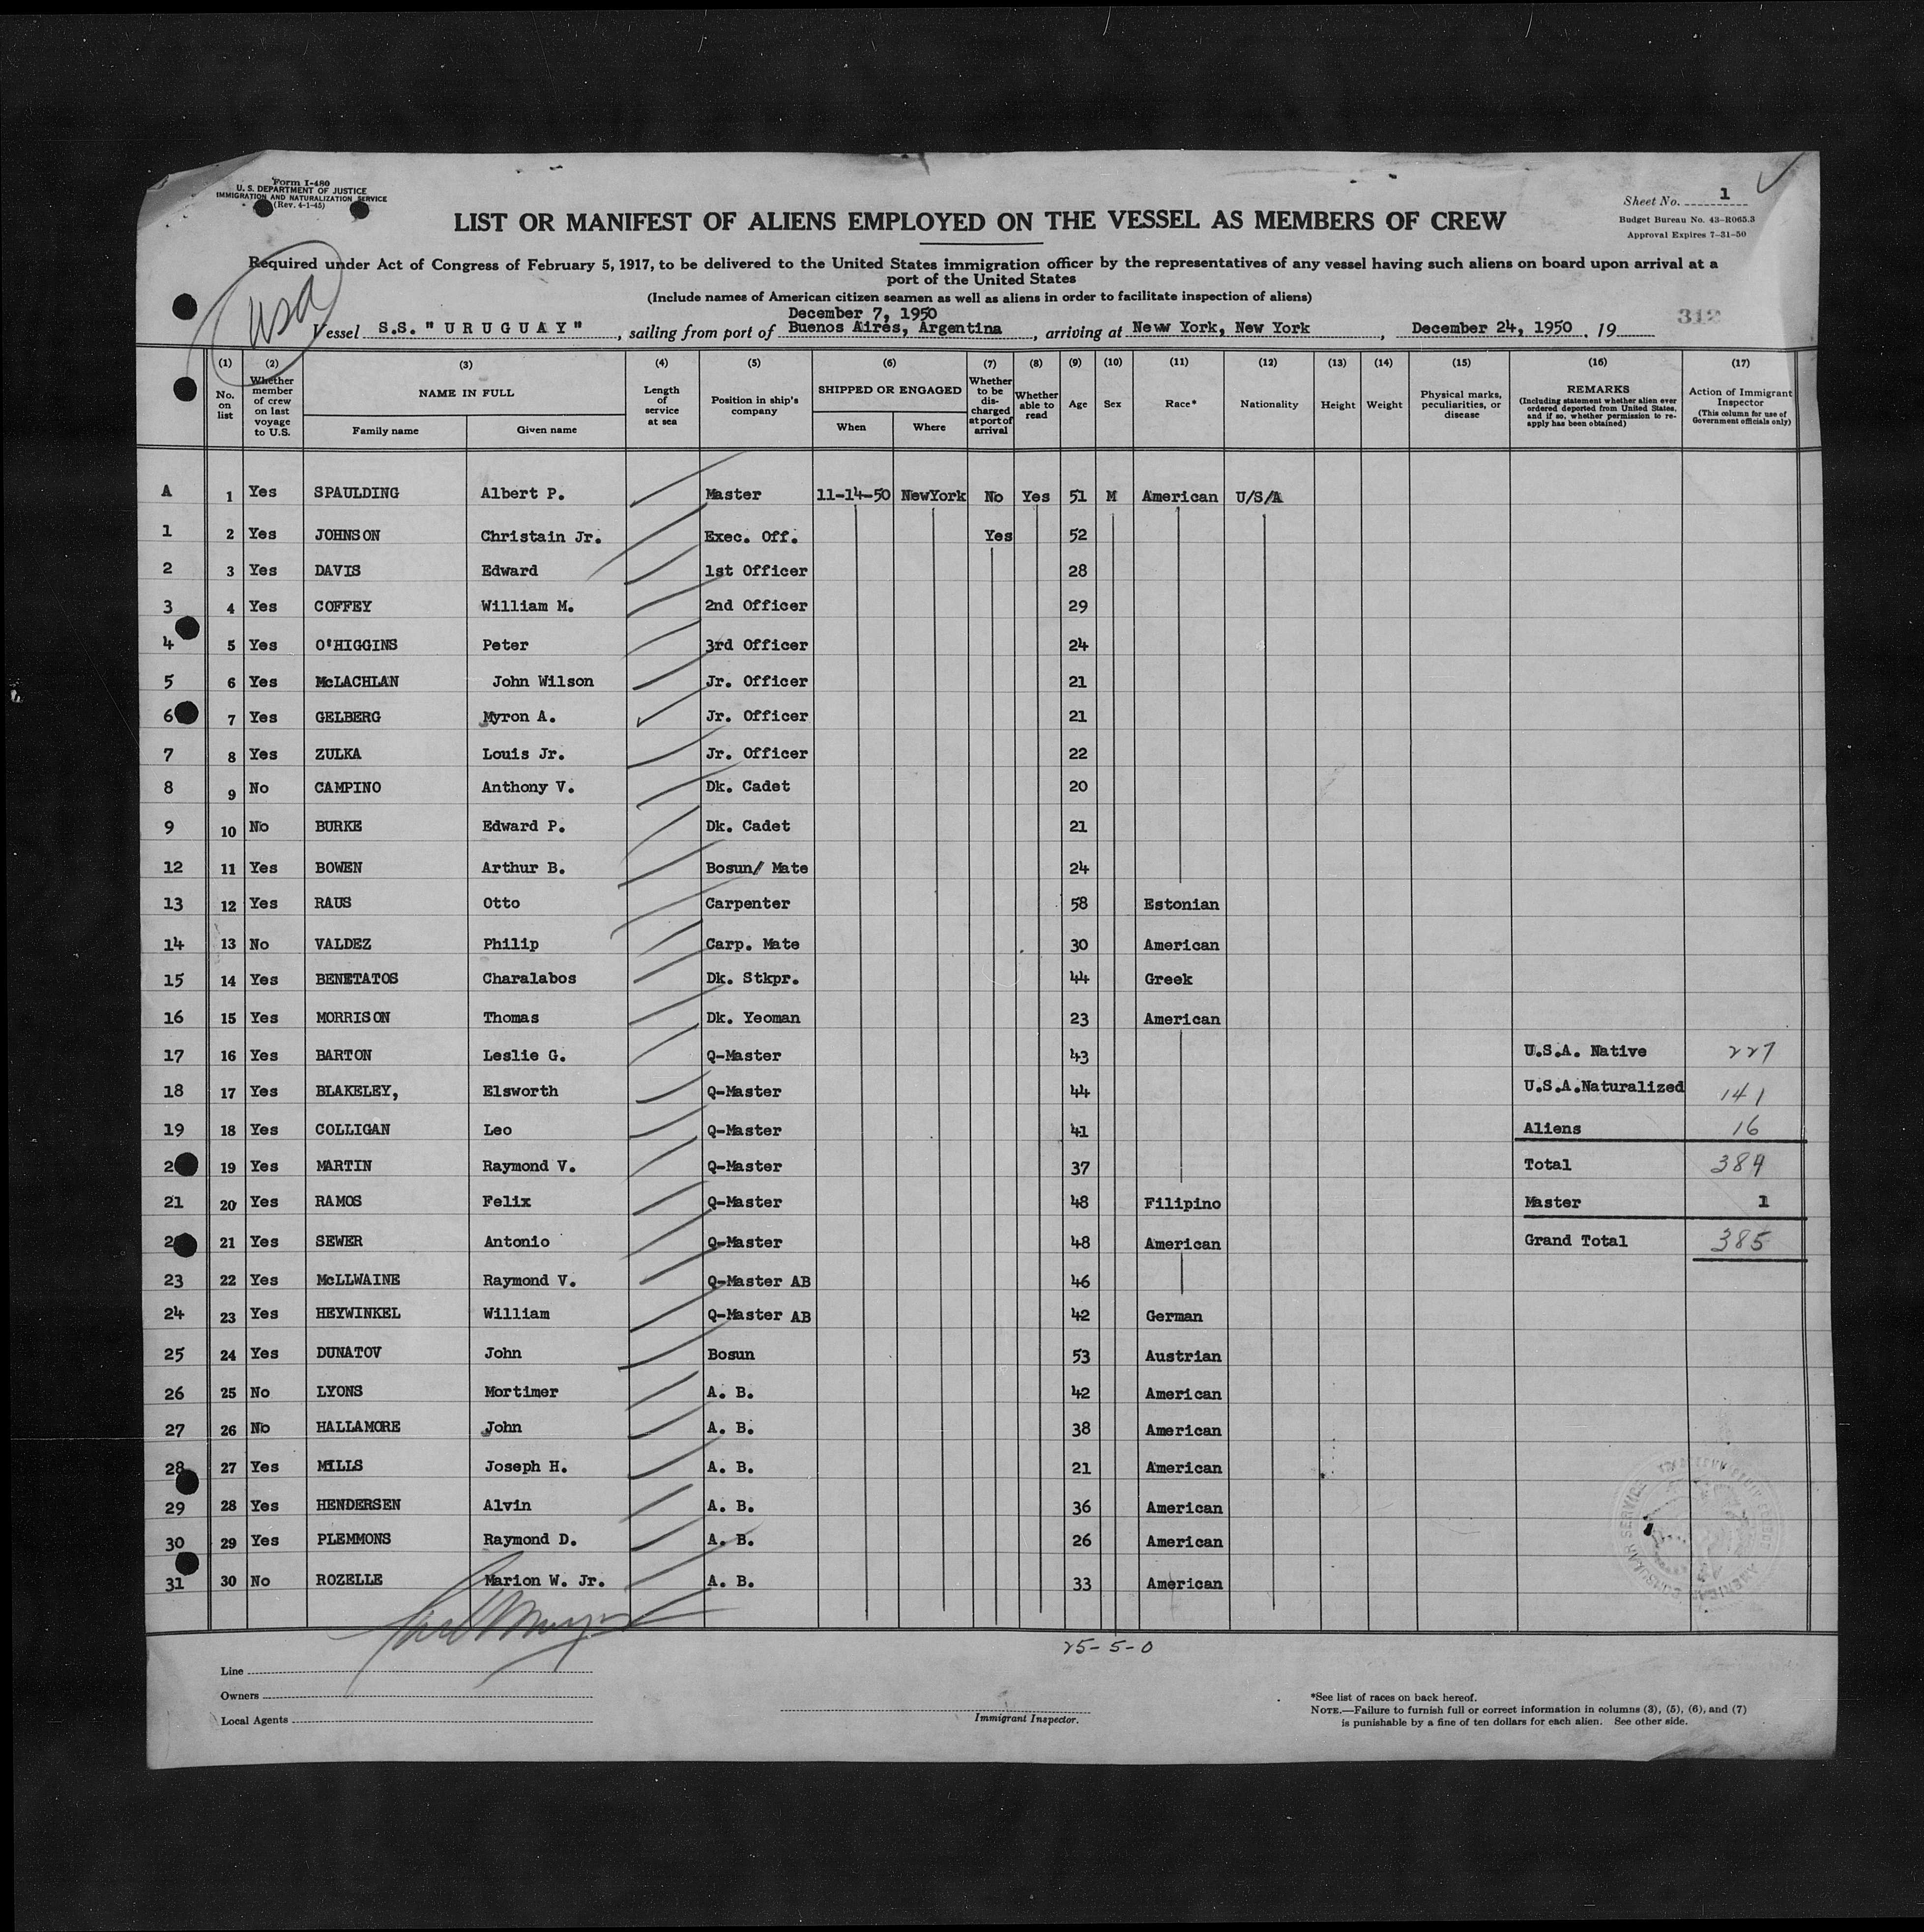 Form I-480
U. S. DEPARTMENT OF JUSTICE
IMMIGRATION AND NATURALIZATION SERVICE
(Rev. 4-1-45)
Sheet No. 1
Budget Bureau No. 43-R065.3
Approval Expires 7-31-50
LIST OR MANIFEST OF ALIENS EMPLOYED ON THE VESSEL AS MEMBERS OF CREW
Required under Act of Congress of February 5, 1917, to be delivered to the United States immigration officer by the representatives of any vessel having such aliens on board upon arrival at a
port of the United States
(Include names of American citizen seamen as well as aliens in order to facilitate inspection of aliens)
usa
December 7, 1950
312
Vessel S.S. "URUGUAY", sailing from port of Buenos Aires, Argentina, arriving at New York, New York, December 24, 1950, 19
(1) (2) (3) (4) (5) (6) (7) (8) (9) (10) (11) (12) (13) (14) (15) (16) (17)
No. on list
Whether member of crew on last voyage to U.S.
NAME IN FULL
Family name
Given name
Length of service at sea
Position in ship's company
SHIPPED OR ENGAGED
When
Where
Whether to be discharged at port of arrival
Whether able to read
Age
Sex
Race*
Nationality
Height
Weight
Physical marks, peculiarities, or disease
REMARKS
(Including statement whether alien ever ordered deported from United States, and if so, whether permission to re-apply has been obtained)
Action of Immigrant Inspector
(This column for use of Government officials only)
A 1 Yes SPAULDING Albert P. Master 11-14-50 NewYork No Yes 51 M American U/S/A
1 2 Yes JOHNSON Christain Jr. Exec. Off. Yes 52
2 3 Yes DAVIS Edward 1st Officer 28
3 4 Yes COFFEY William M. 2nd Officer 29
4 5 Yes O'HIGGINS Peter 3rd Officer 24
5 6 Yes McLACHLAN John Wilson Jr. Officer 21
6 7 Yes GELBERG Myron A. Jr. Officer 21
7 8 Yes ZULKA Louis Jr. Jr. Officer 22
8 9 No CAMPINO Anthony V. Dk. Cadet 20
9 10 No BURKE Edward P. Dk. Cadet 21
12 11 Yes BOWEN Arthur B. Bosun/ Mate 24
13 12 Yes RAUS Otto Carpenter 58 Estonian
14 13 No VALDEZ Philip Carp. Mate 30 American
15 14 Yes BENETATOS Charalabos Dk. Stkpr. 44 Greek
16 15 Yes MORRISON Thomas Dk. Yeoman 23 American
17 16 Yes BARTON Leslie G. Q-Master 43 U.S.A. Native 227
18 17 Yes BLAKELEY, Elsworth Q-Master 44 U.S.A.Naturalized 141
19 18 Yes COLLIGAN Leo Q-Master 41 Aliens 16
2 19 Yes MARTIN Raymond V. Q-Master 37 Total 384
21 20 Yes RAMOS Felix Q-Master 48 Filipino Master 1
2 21 Yes SEWER Antonio Q-Master 48 American Grand Total 385
23 22 Yes McLLWAINE Raymond V. Q-Master AB 46
24 23 Yes HEYWINKEL William Q-Master AB 42 German
25 24 Yes DUNATOV John Bosun 53 Austrian
26 25 No LYONS Mortimer A. B. 42 American
27 26 No HALLAMORE John A. B. 38 American
28 27 Yes MILLS Joseph H. A. B. 21 American
29 28 Yes HENDERSEN Alvin A. B. 36 American
30 29 Yes PLEMMONS Raymond D. A. B. 26 American
31 30 No ROZELLE Marion W. Jr. A. B. 33 American
25-5-0
Line
Owners
Local Agents
Immigrant Inspector.
*See list of races on back hereof.
NOTE.—Failure to furnish full or correct information in columns (3), (5), (6), and (7)
is punishable by a fine of ten dollars for each alien. See other side.